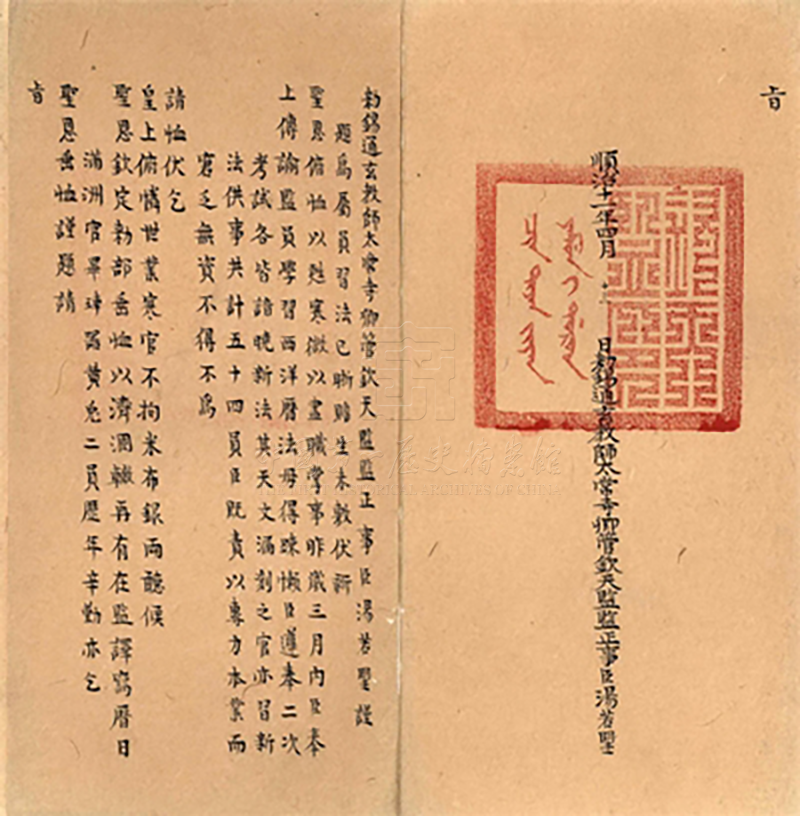 旨
順治十一年四月 日勅錫通玄教師太常寺卿管欽天監監正事臣湯若望
勅錫通玄教師太常寺卿管欽天監監正事臣湯若望謹
題為屬員習法已晰贍生未敷伏祈
聖恩俯恤以甦寒微以盡職掌事昨歲三月內臣奉
上傳諭監員學習西洋曆法毋得踈懶臣遵奉二次
考試各皆諳曉新法其天文漏刻之官亦習新
法供事共計五十四員臣既責以專力本業而
窘乏無資不得不為
請恤伏乞
皇上俯憐世業寒官不拘米布銀兩聽候
聖恩欽定勅部垂恤以濟涸轍再有在監譯寫曆日
滿洲官畢黃二員歷年辛勤亦乞
聖恩垂恤謹題請
旨